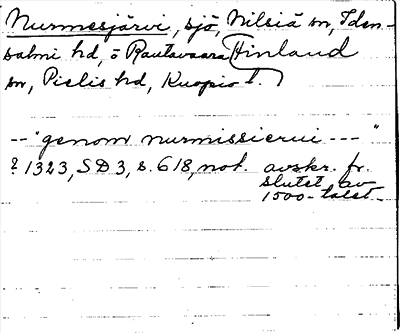 Nurmesjärvi, sjö, Nilsiä sn, Iden-
salmi hd, ö Rautavaara Finland
sn, Pielis hd, Kuopio l.
--"genom nurmissierui --- "
? 1323, SD 3, s. 618, not. avskr. fr.
slutet av
1500-talet